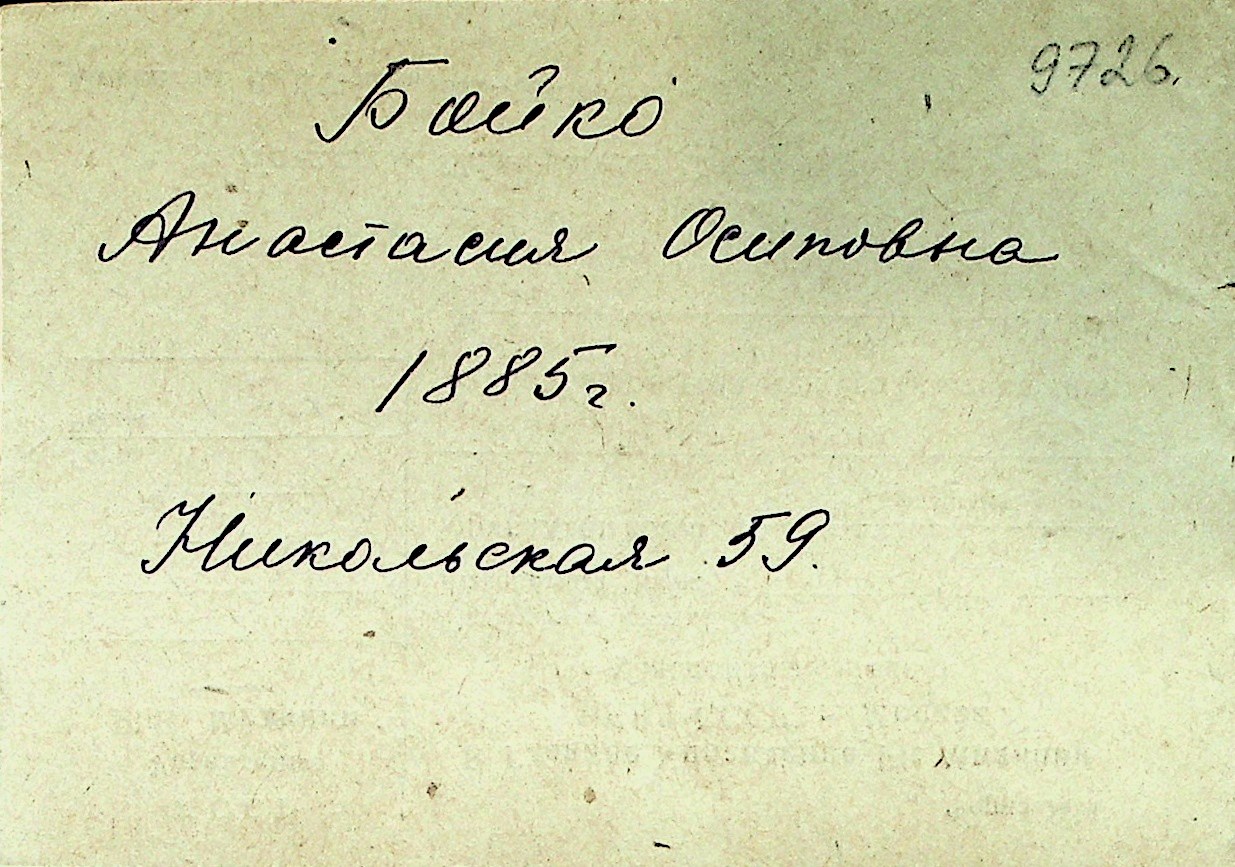 9726.
Бойко
Анастасия Осиповна
1885г.
Никольская 59.